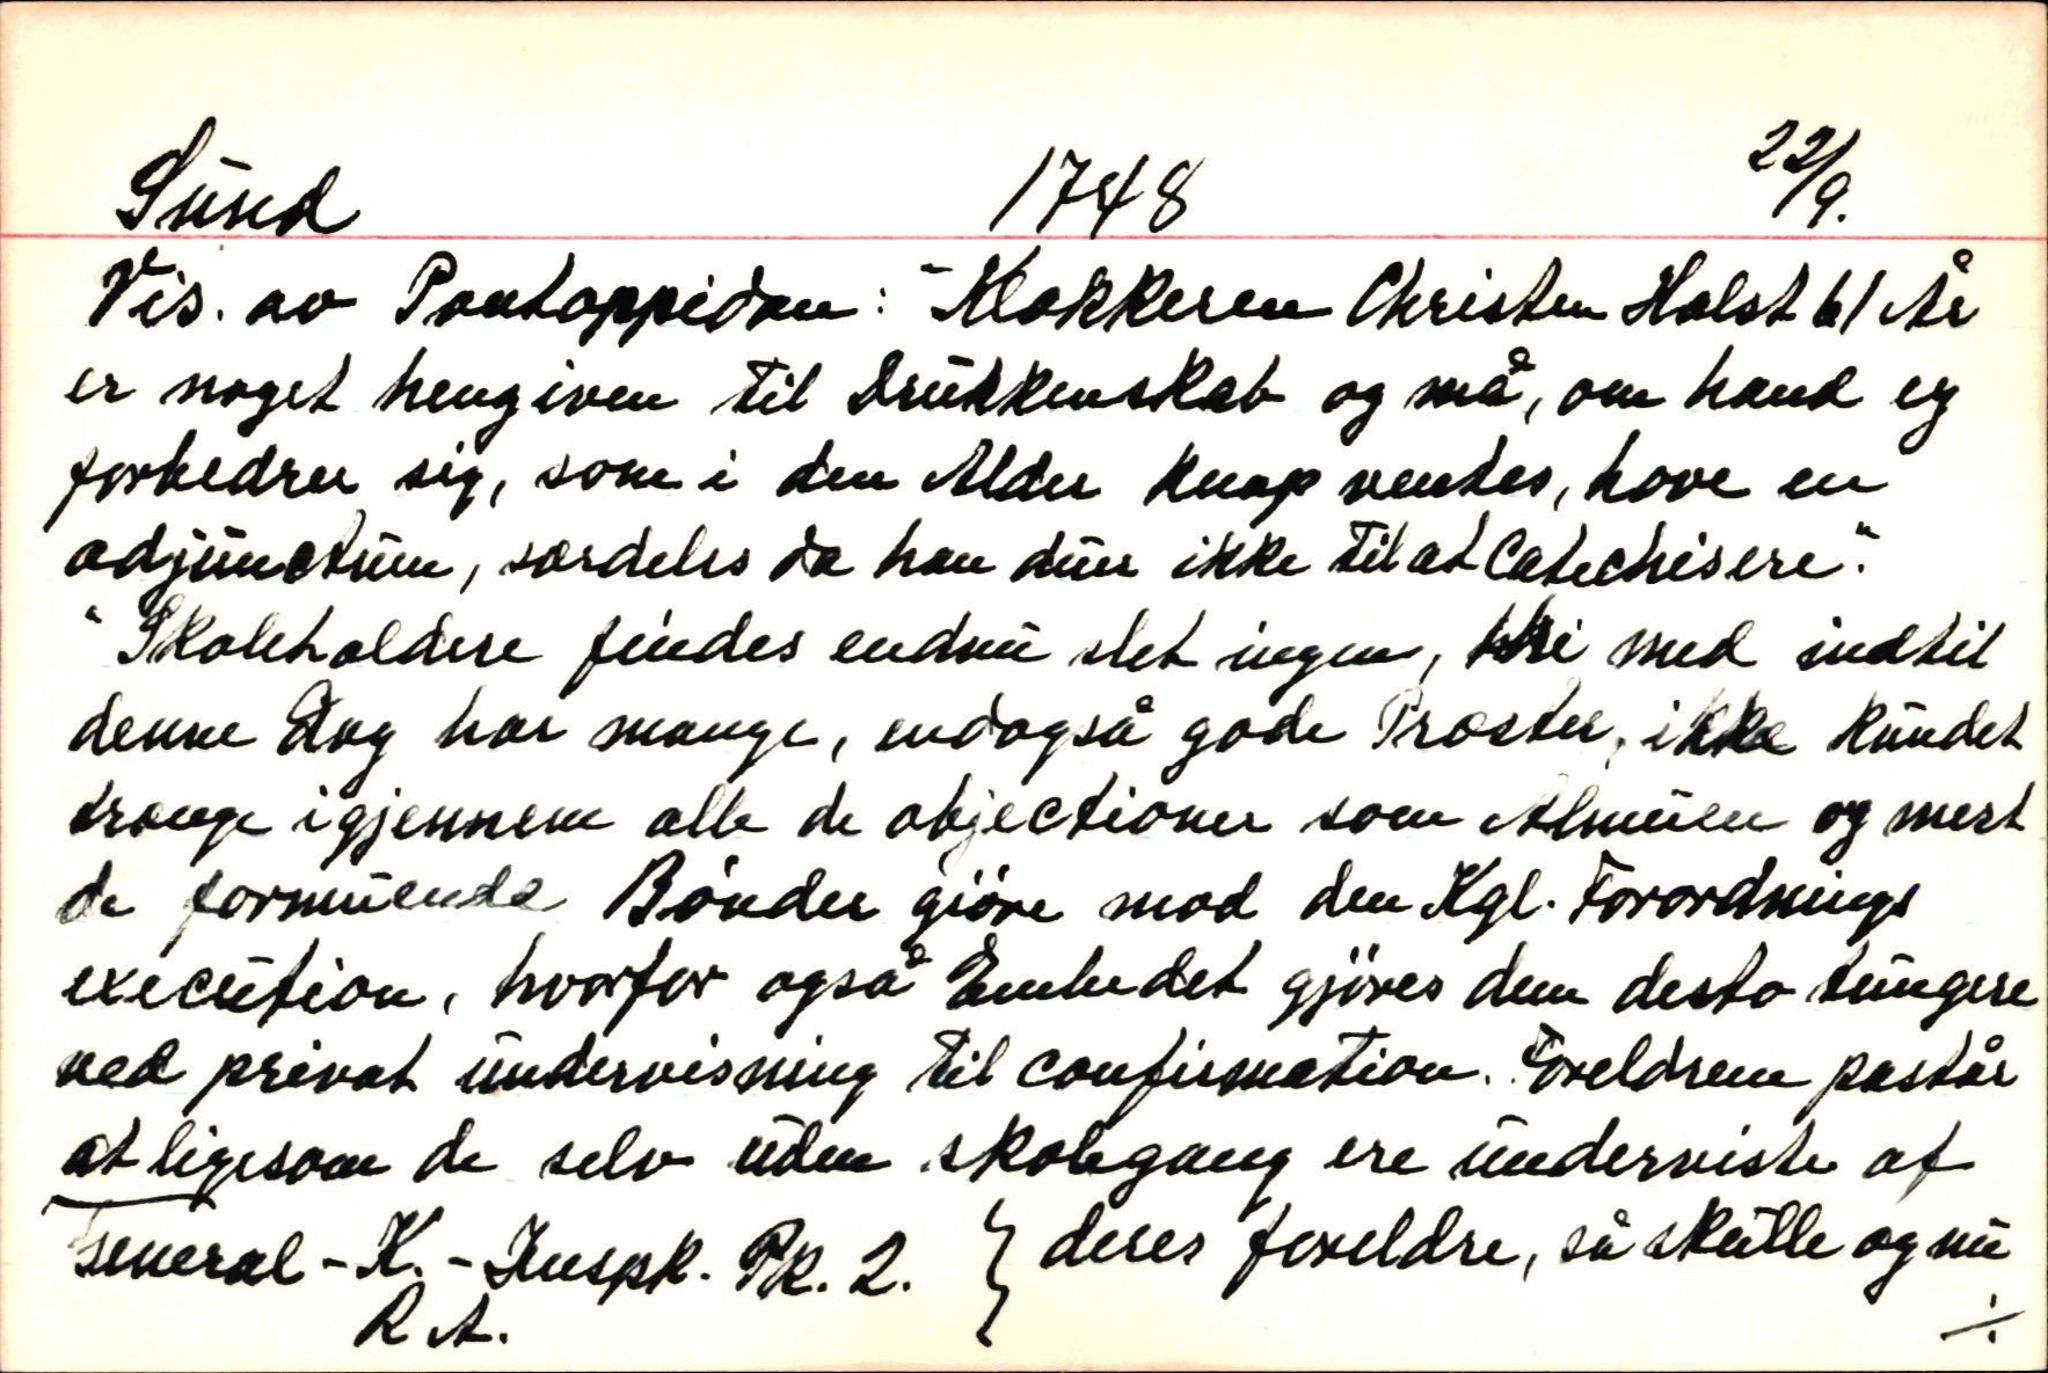 Sund 1748 22/9.
Vis. av Pontoppidan: "Klokkeren Christen Holst 61 År
er noget hengiven til Drukkenskab og må, om hand ey
forbedrer sig, som i den Alder knap ventes, have en
adjunctum, særdeles da han duer ikke til at Catechisere."
"Skoleholdere findes endnu slet ingen, thi med indtil
denne Dag har mange, endogså gode Præster, ikke kundet
trænge igjennem alle de objectioner som Almuen og mest
de formuende Bönder giöre mod den Kgl. Forordnings
execution, hvorfor også Embedet gjöres dem desto tungere
ved privat undervisning til confirmation. Foreldrene påstår
at ligesom de selv uden skolegang ere underviste af
deres foreldre, så skulle og nu
General-K.-Inspk. Pk. 2.
R A.
./.